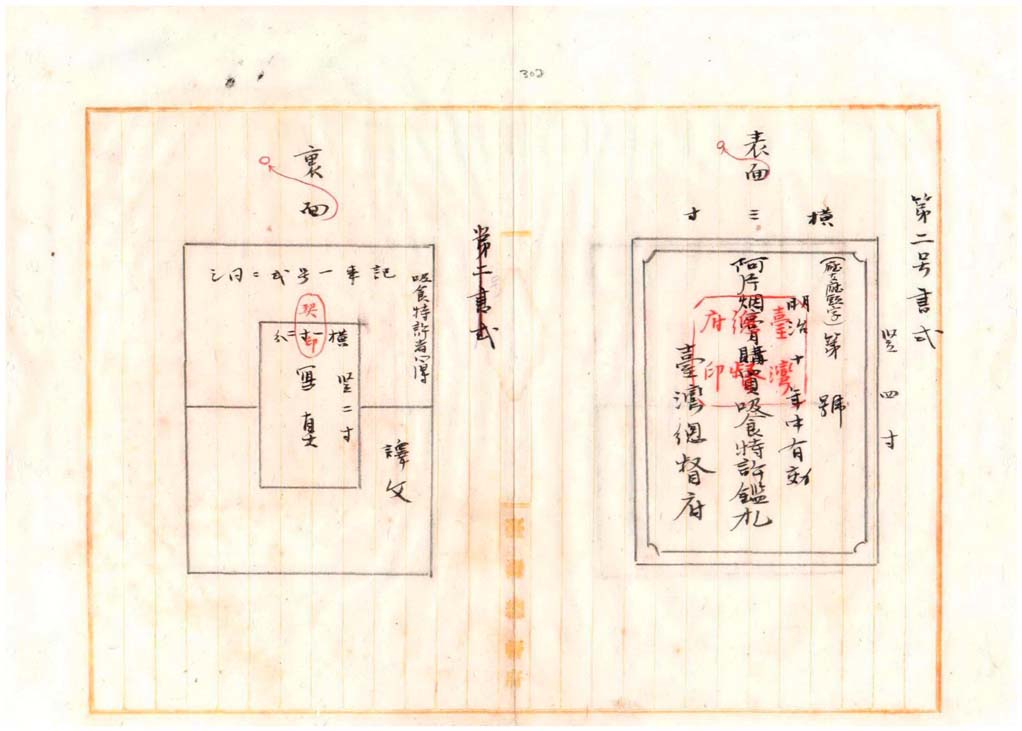 302
第二号書式
表面
横三寸
竪四寸
第　號
明治　十　年中有効
阿片烟膏購買吸食特許鑑札
臺灣總督府
臺灣總督府印
臺灣總督府
第二書式
裏面
吸食特許者心得
記事一号式ニ同シ
契印
横一寸二分
竪二寸
寫真
譯文